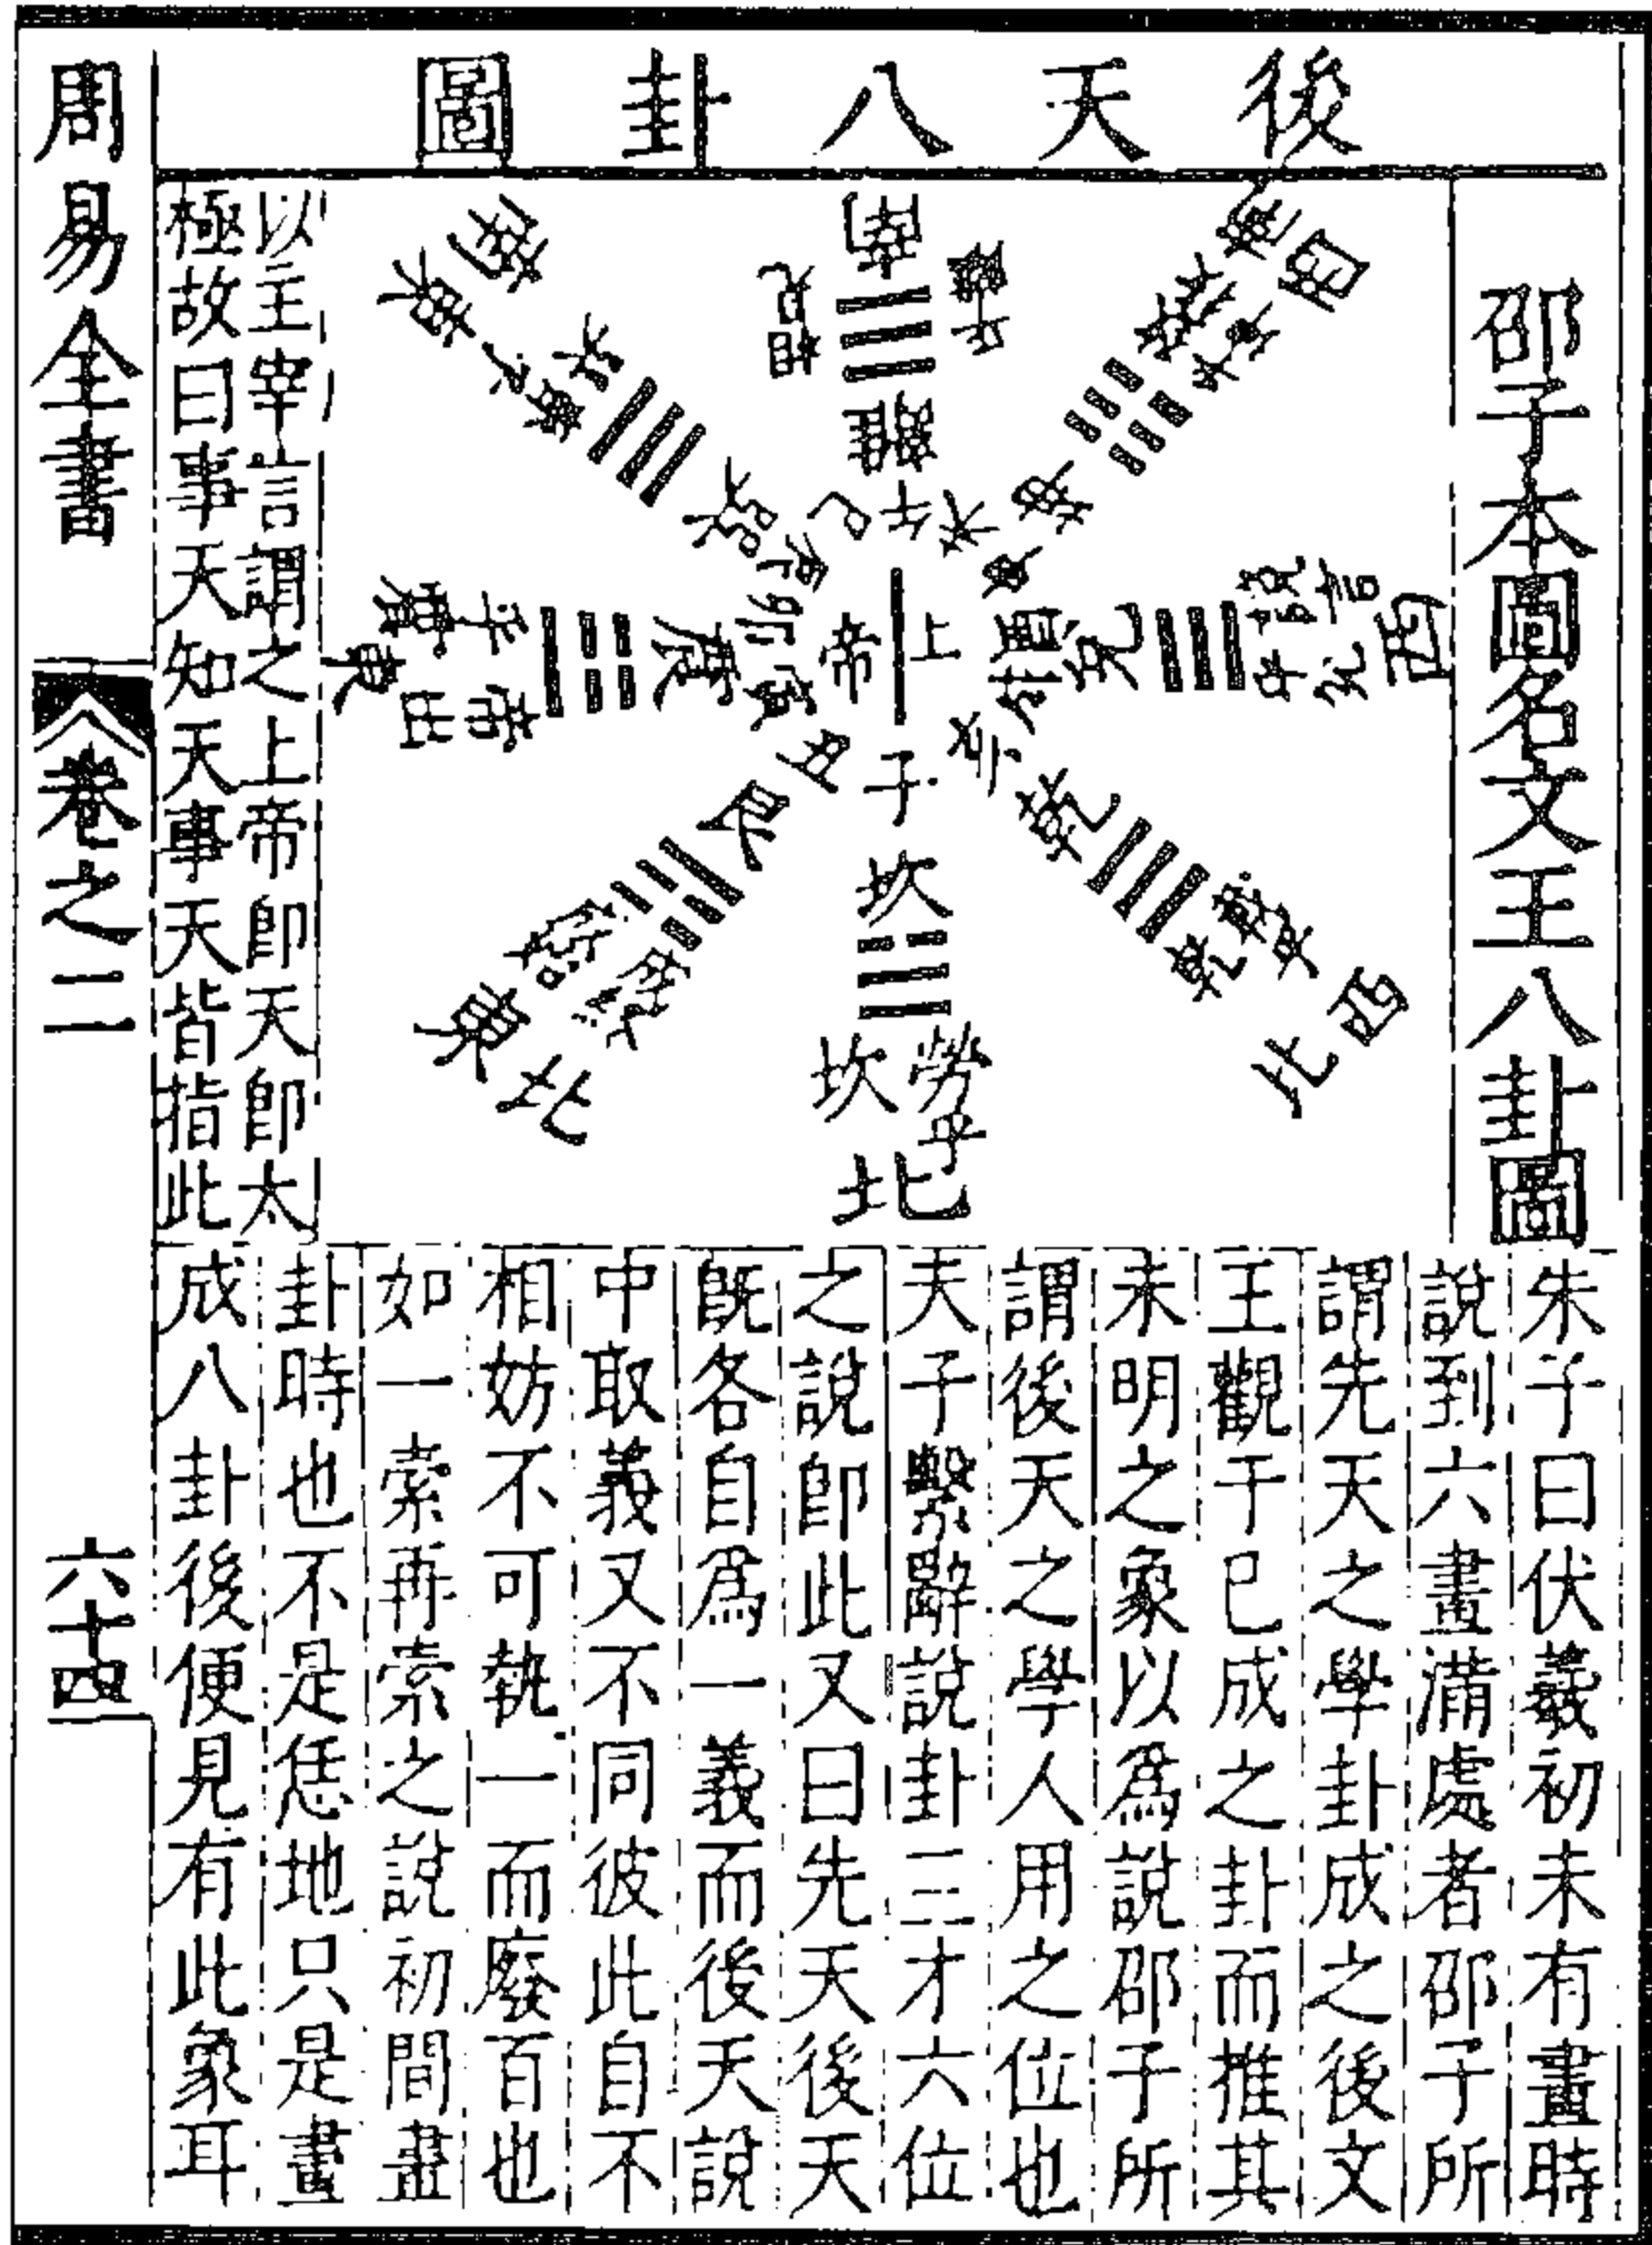 後天八卦圖
邵子本圖名文王八卦圖
南
相見乎離
離
西南
致役乎坤
坤
西
說言乎兌
兌
西北
戰乎乾
乾
北
勞乎坎
坎
東北
艮
東
帝出乎震
震
東南
齊乎巽
巽
子
丑
寅
卯
辰
巳
午
未
申
酉
戌
亥
上帝
以主宰言謂之上帝卽天卽太
極故曰事天知天事天皆指此
朱子曰伏羲初未有畫時
說到六畫滿處者邵子所
謂先天之學卦成之後文
王觀于已成之卦而推其
未明之象以爲說邵子所
謂後天之學人用之位也
夫子繫辭說卦三才六位
之說卽此又曰先天後天
旣各自爲一義而後天說
中取義又不同彼此自不
相妨不可執一而廢百也
如一索再索之說初間畫
卦時也不是恁地只是畫
成八卦後便見有此象耳
周易全書
卷之二
六十四